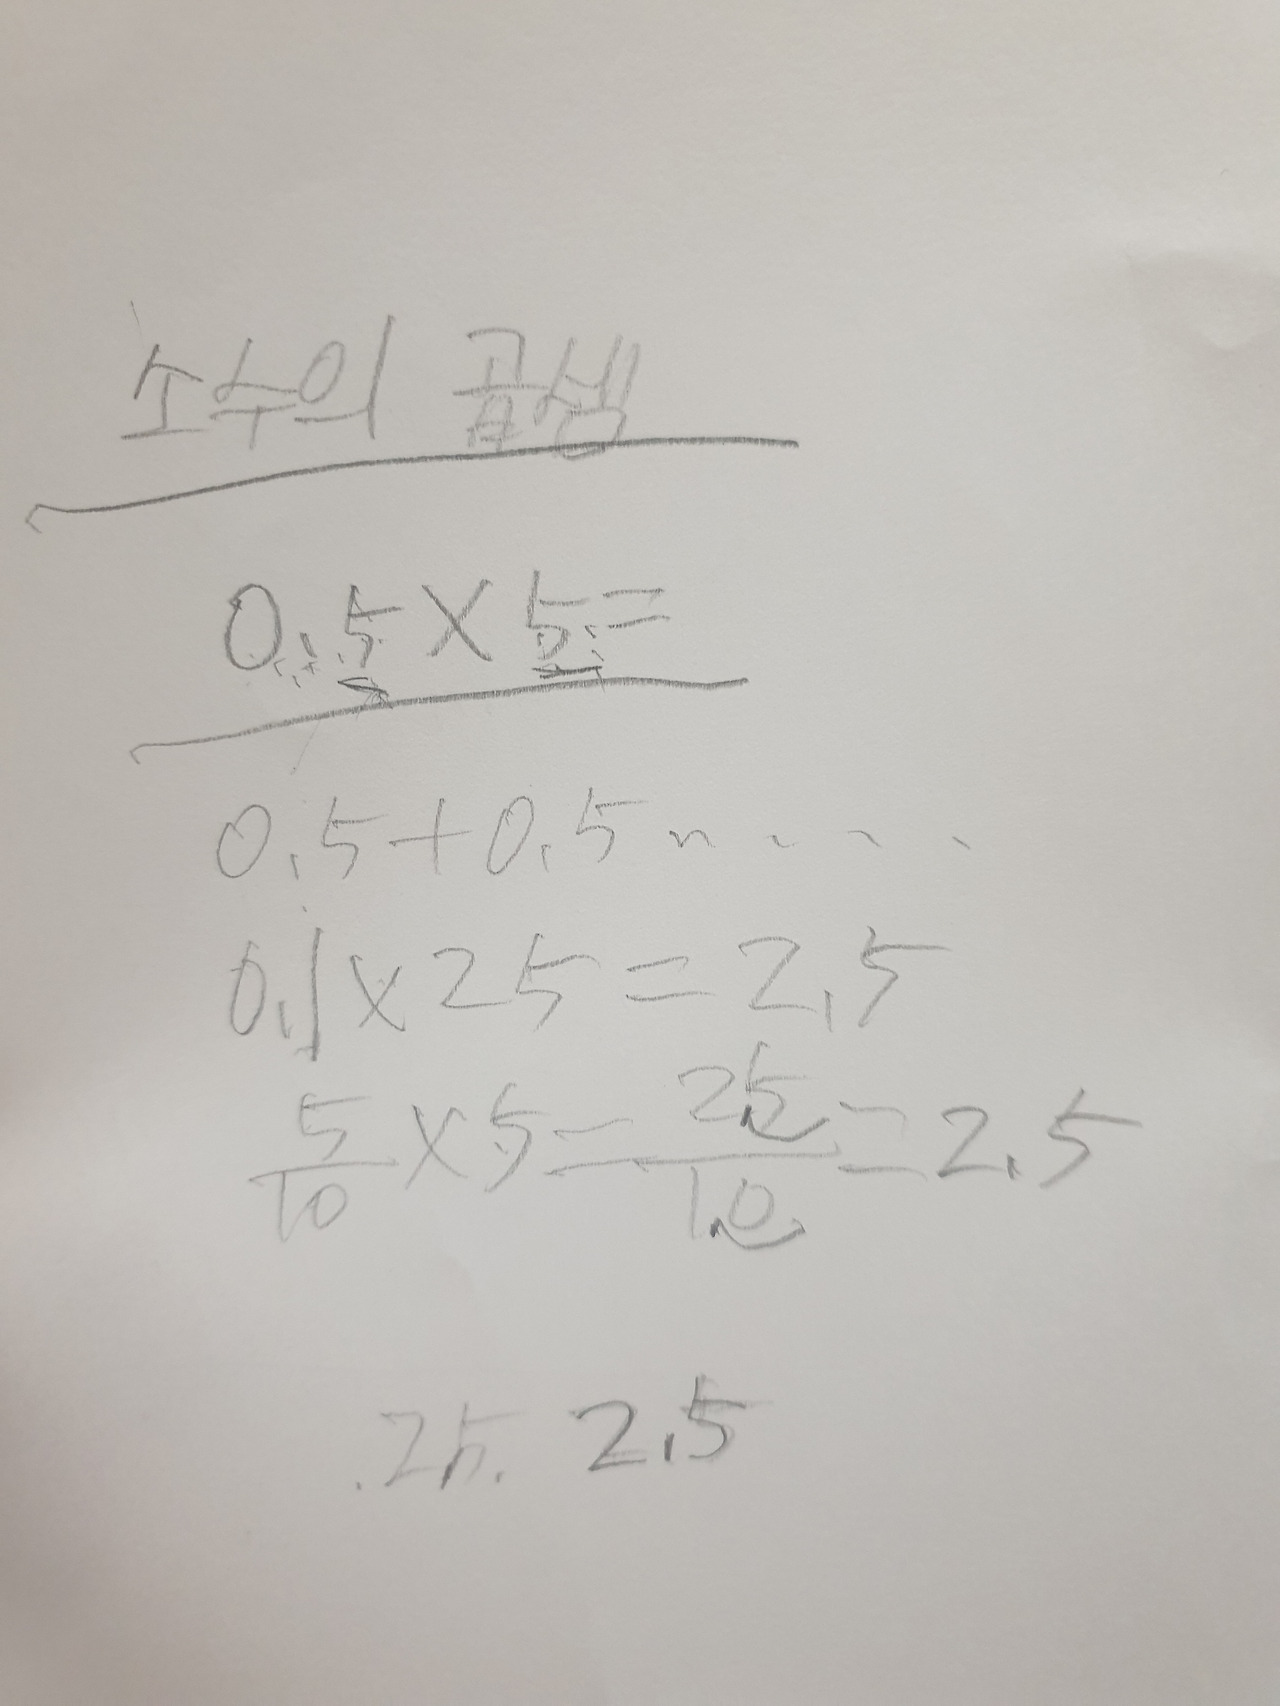 소수의 곱셈
0.5×5=
0.5+0.5.....
0.1×25=2.5
5/10×5=25/10=2.5
.25. 2.5